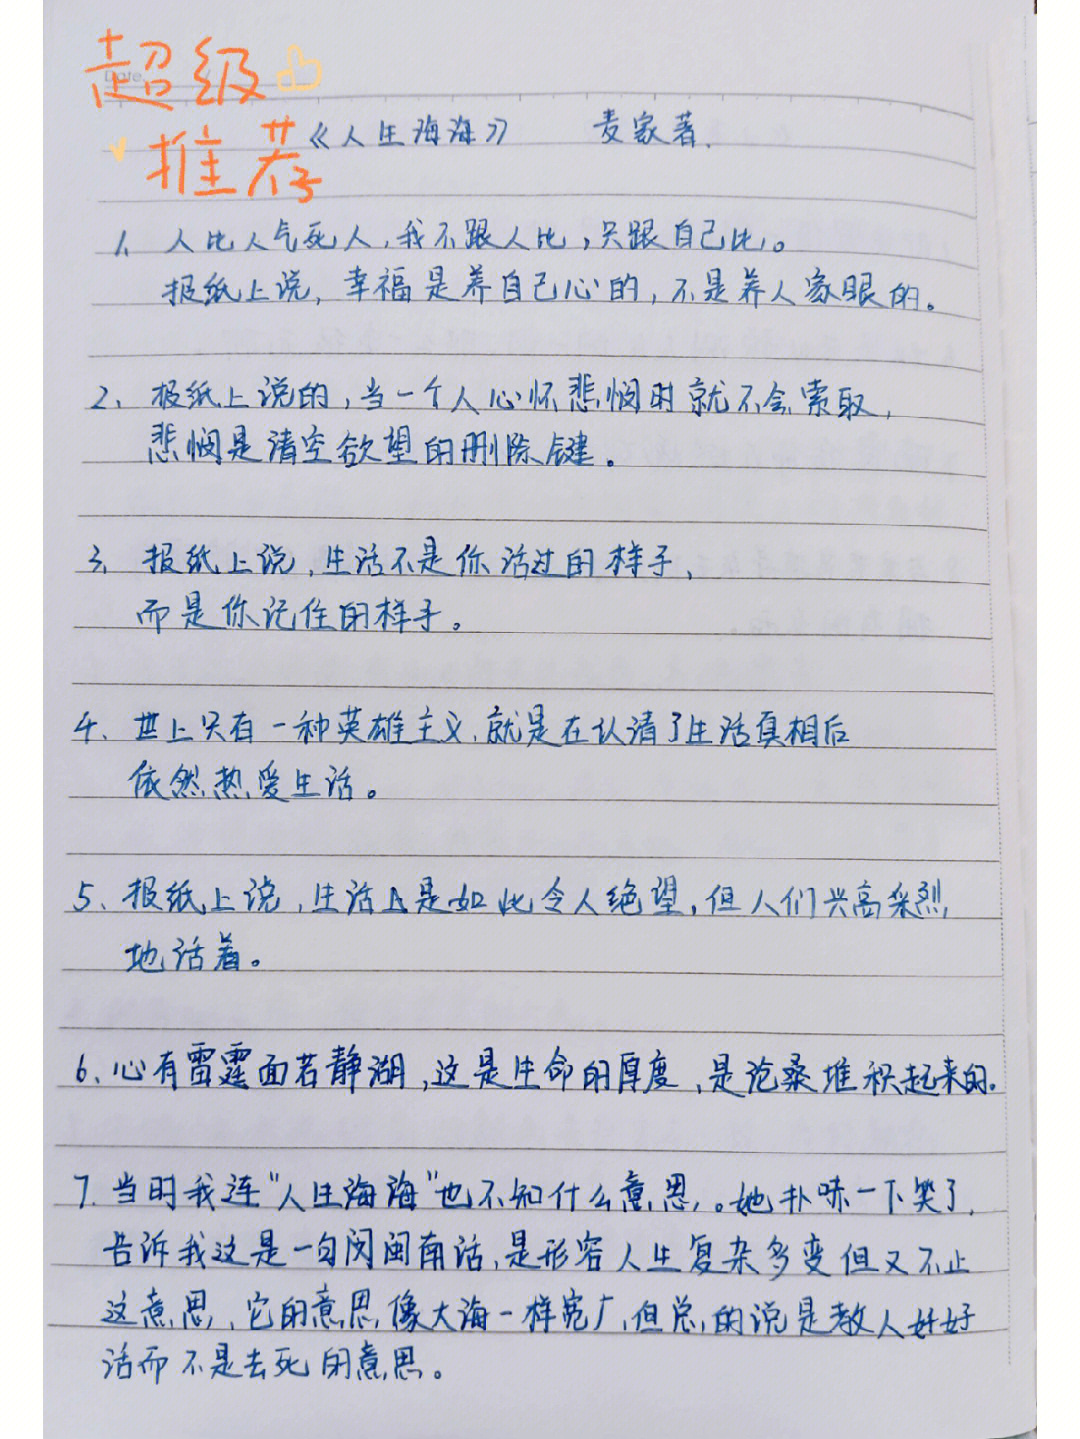 超级
Date.
推荐
《人生海海》 麦家著.
1、人比人气死人,我不跟人比,只跟自己比。
报纸上说,幸福是养自己心的,不是养人家眼的。
2、报纸上说的,当一个人心怀悲悯时就不会索取,
悲悯是清空欲望的删除键。
3、报纸上说,生活不是你活过的样子、
而是你记住的样子。
4、世上只有一种英雄主义,就是在认清了生活真相后
依然热爱生活。
5、报纸上说,生活是如此令人绝望,但人们兴高采烈
地活着。
6、心有雷霆面若静湖,这是生命的厚度,是沧桑堆积起来的.
7.当时我连“人生海海”也不知什么意思,。她扑哧一下笑了,
告诉我这是一句闵闽南话,是形容人生复杂多变但又不止
这意思,它的意思像大海一样宽广,但总的说是教人好好
活而不是去死的意思。